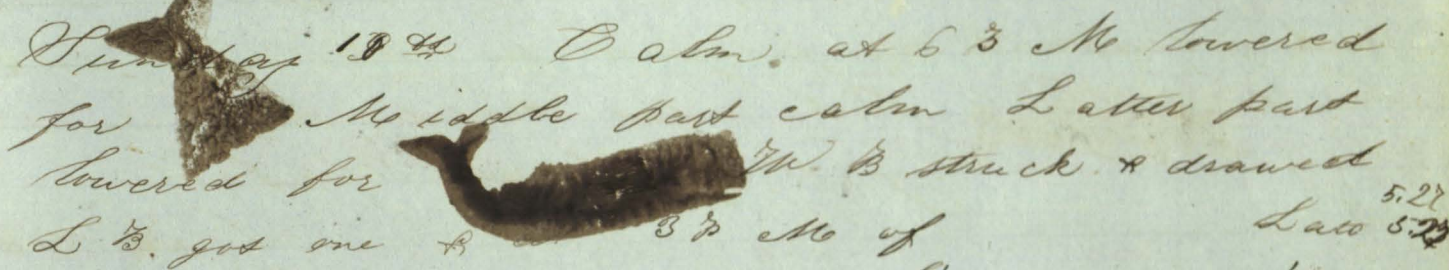 Sunday 19th Calm. at 6 P M lowered
for Middle part calm Latter part
lowered for W. B struck & drawed
L B. got one & 3 P M of
5.27
Lato 5.27